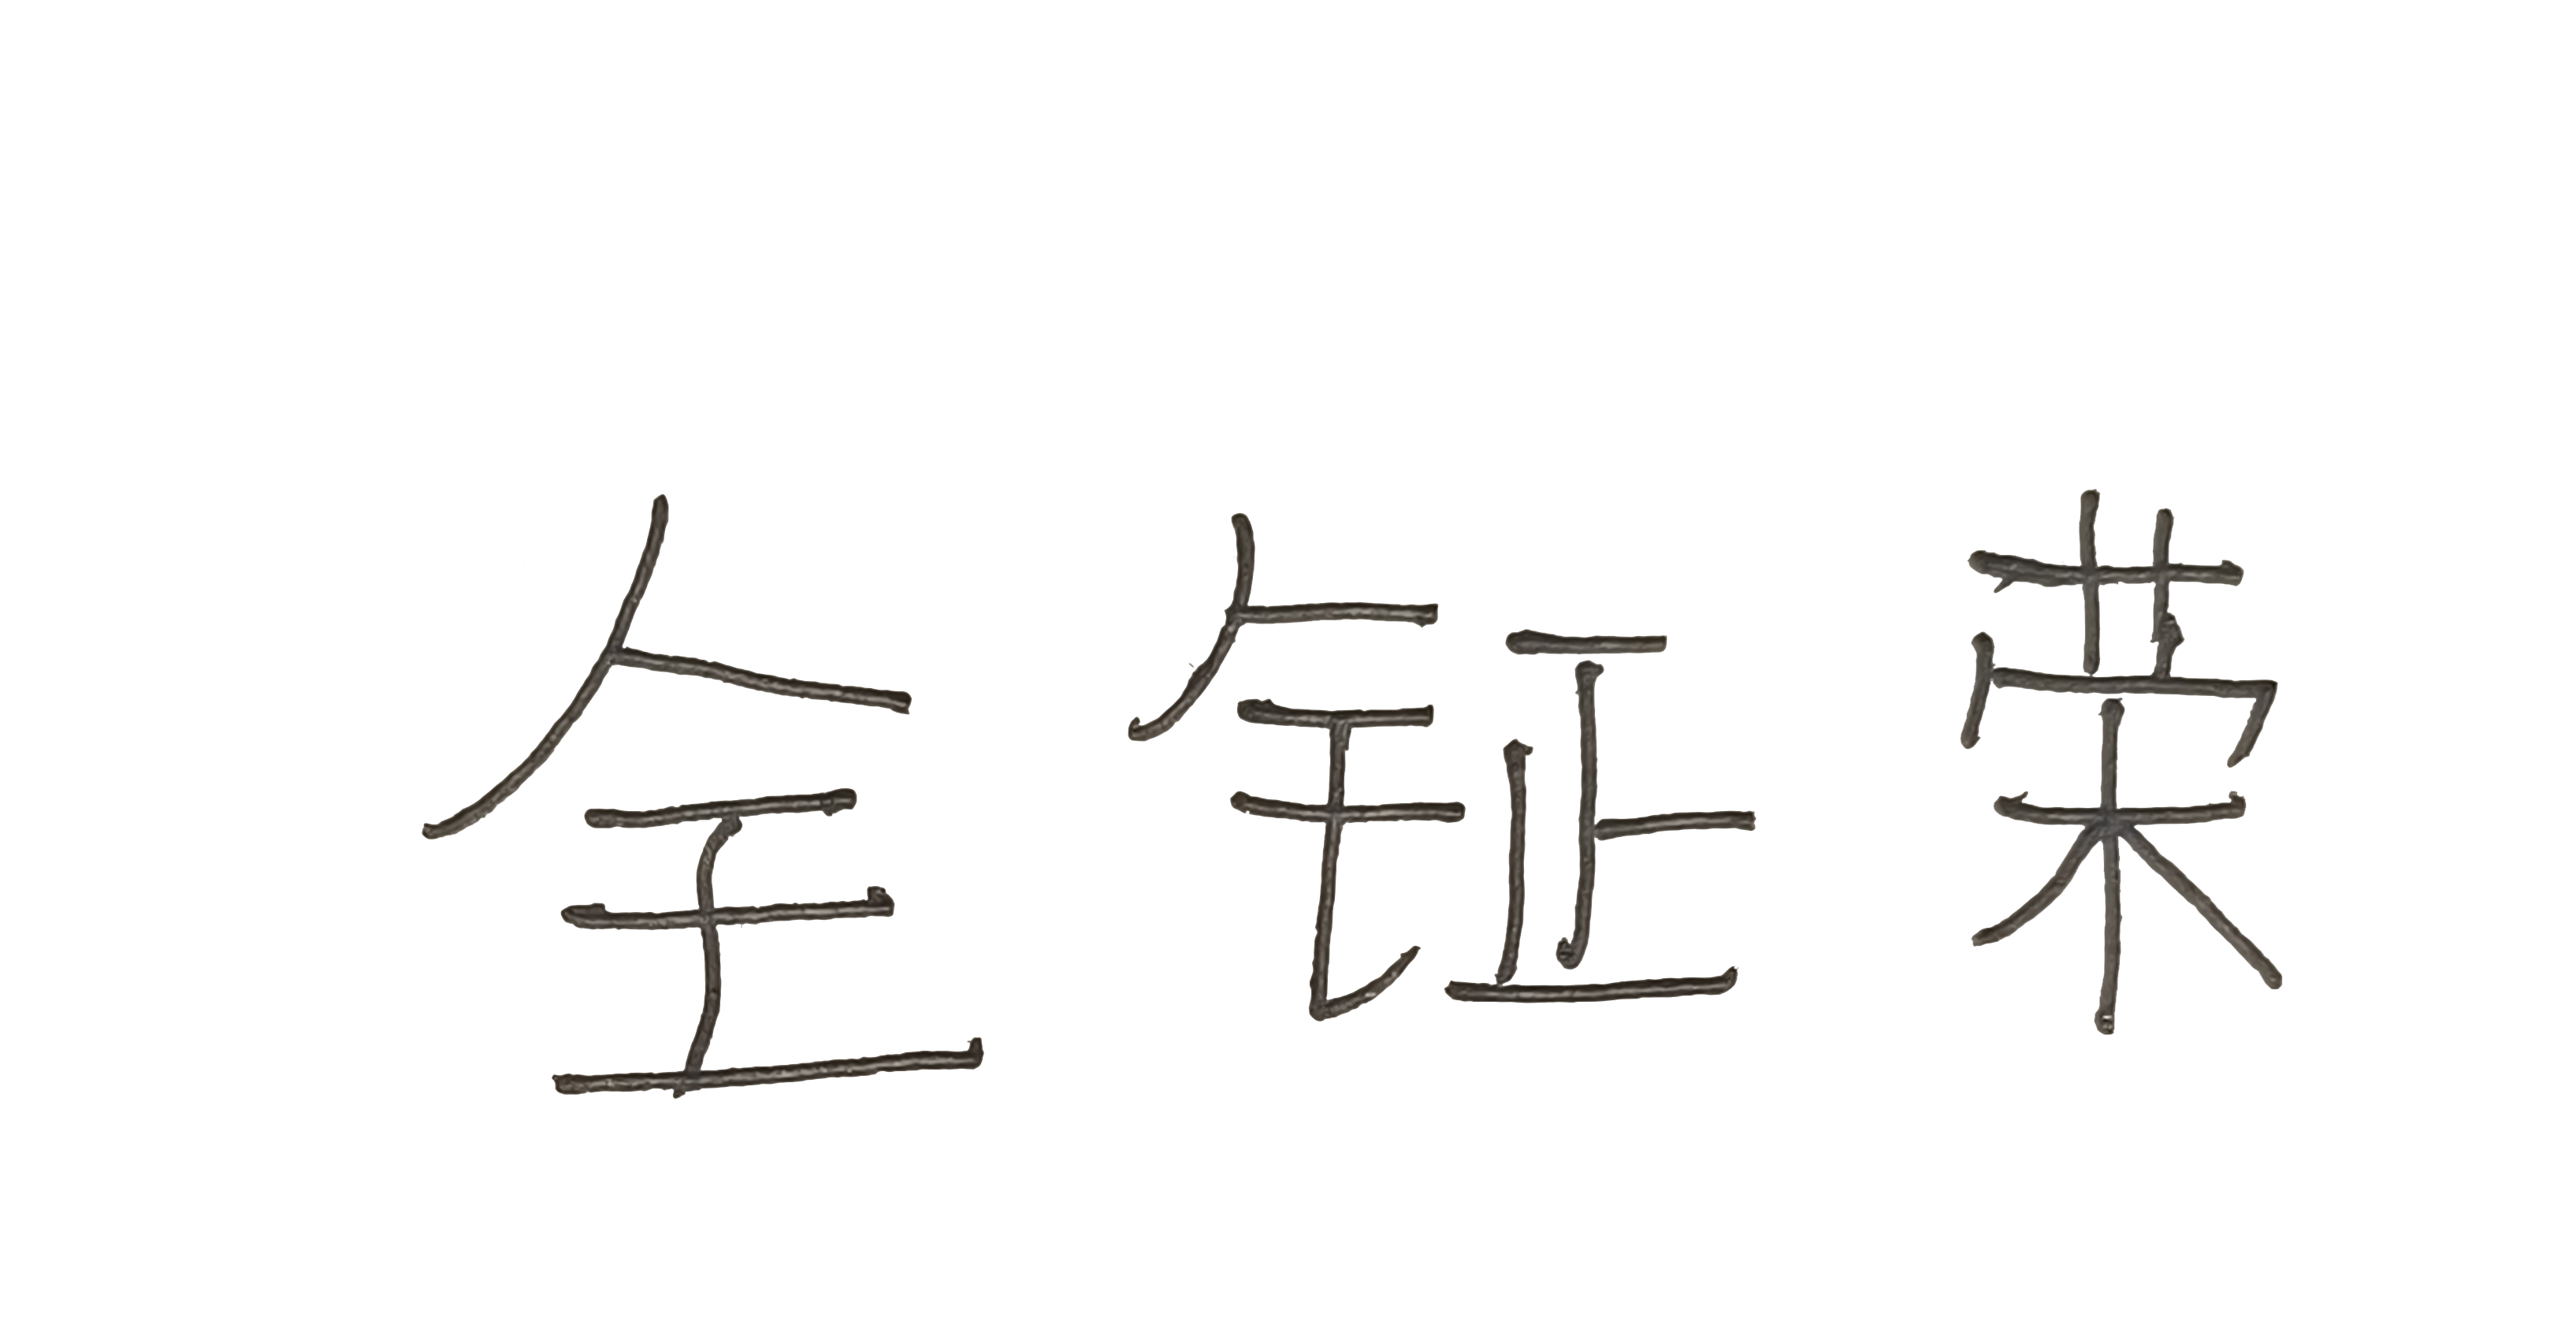 全钲荣